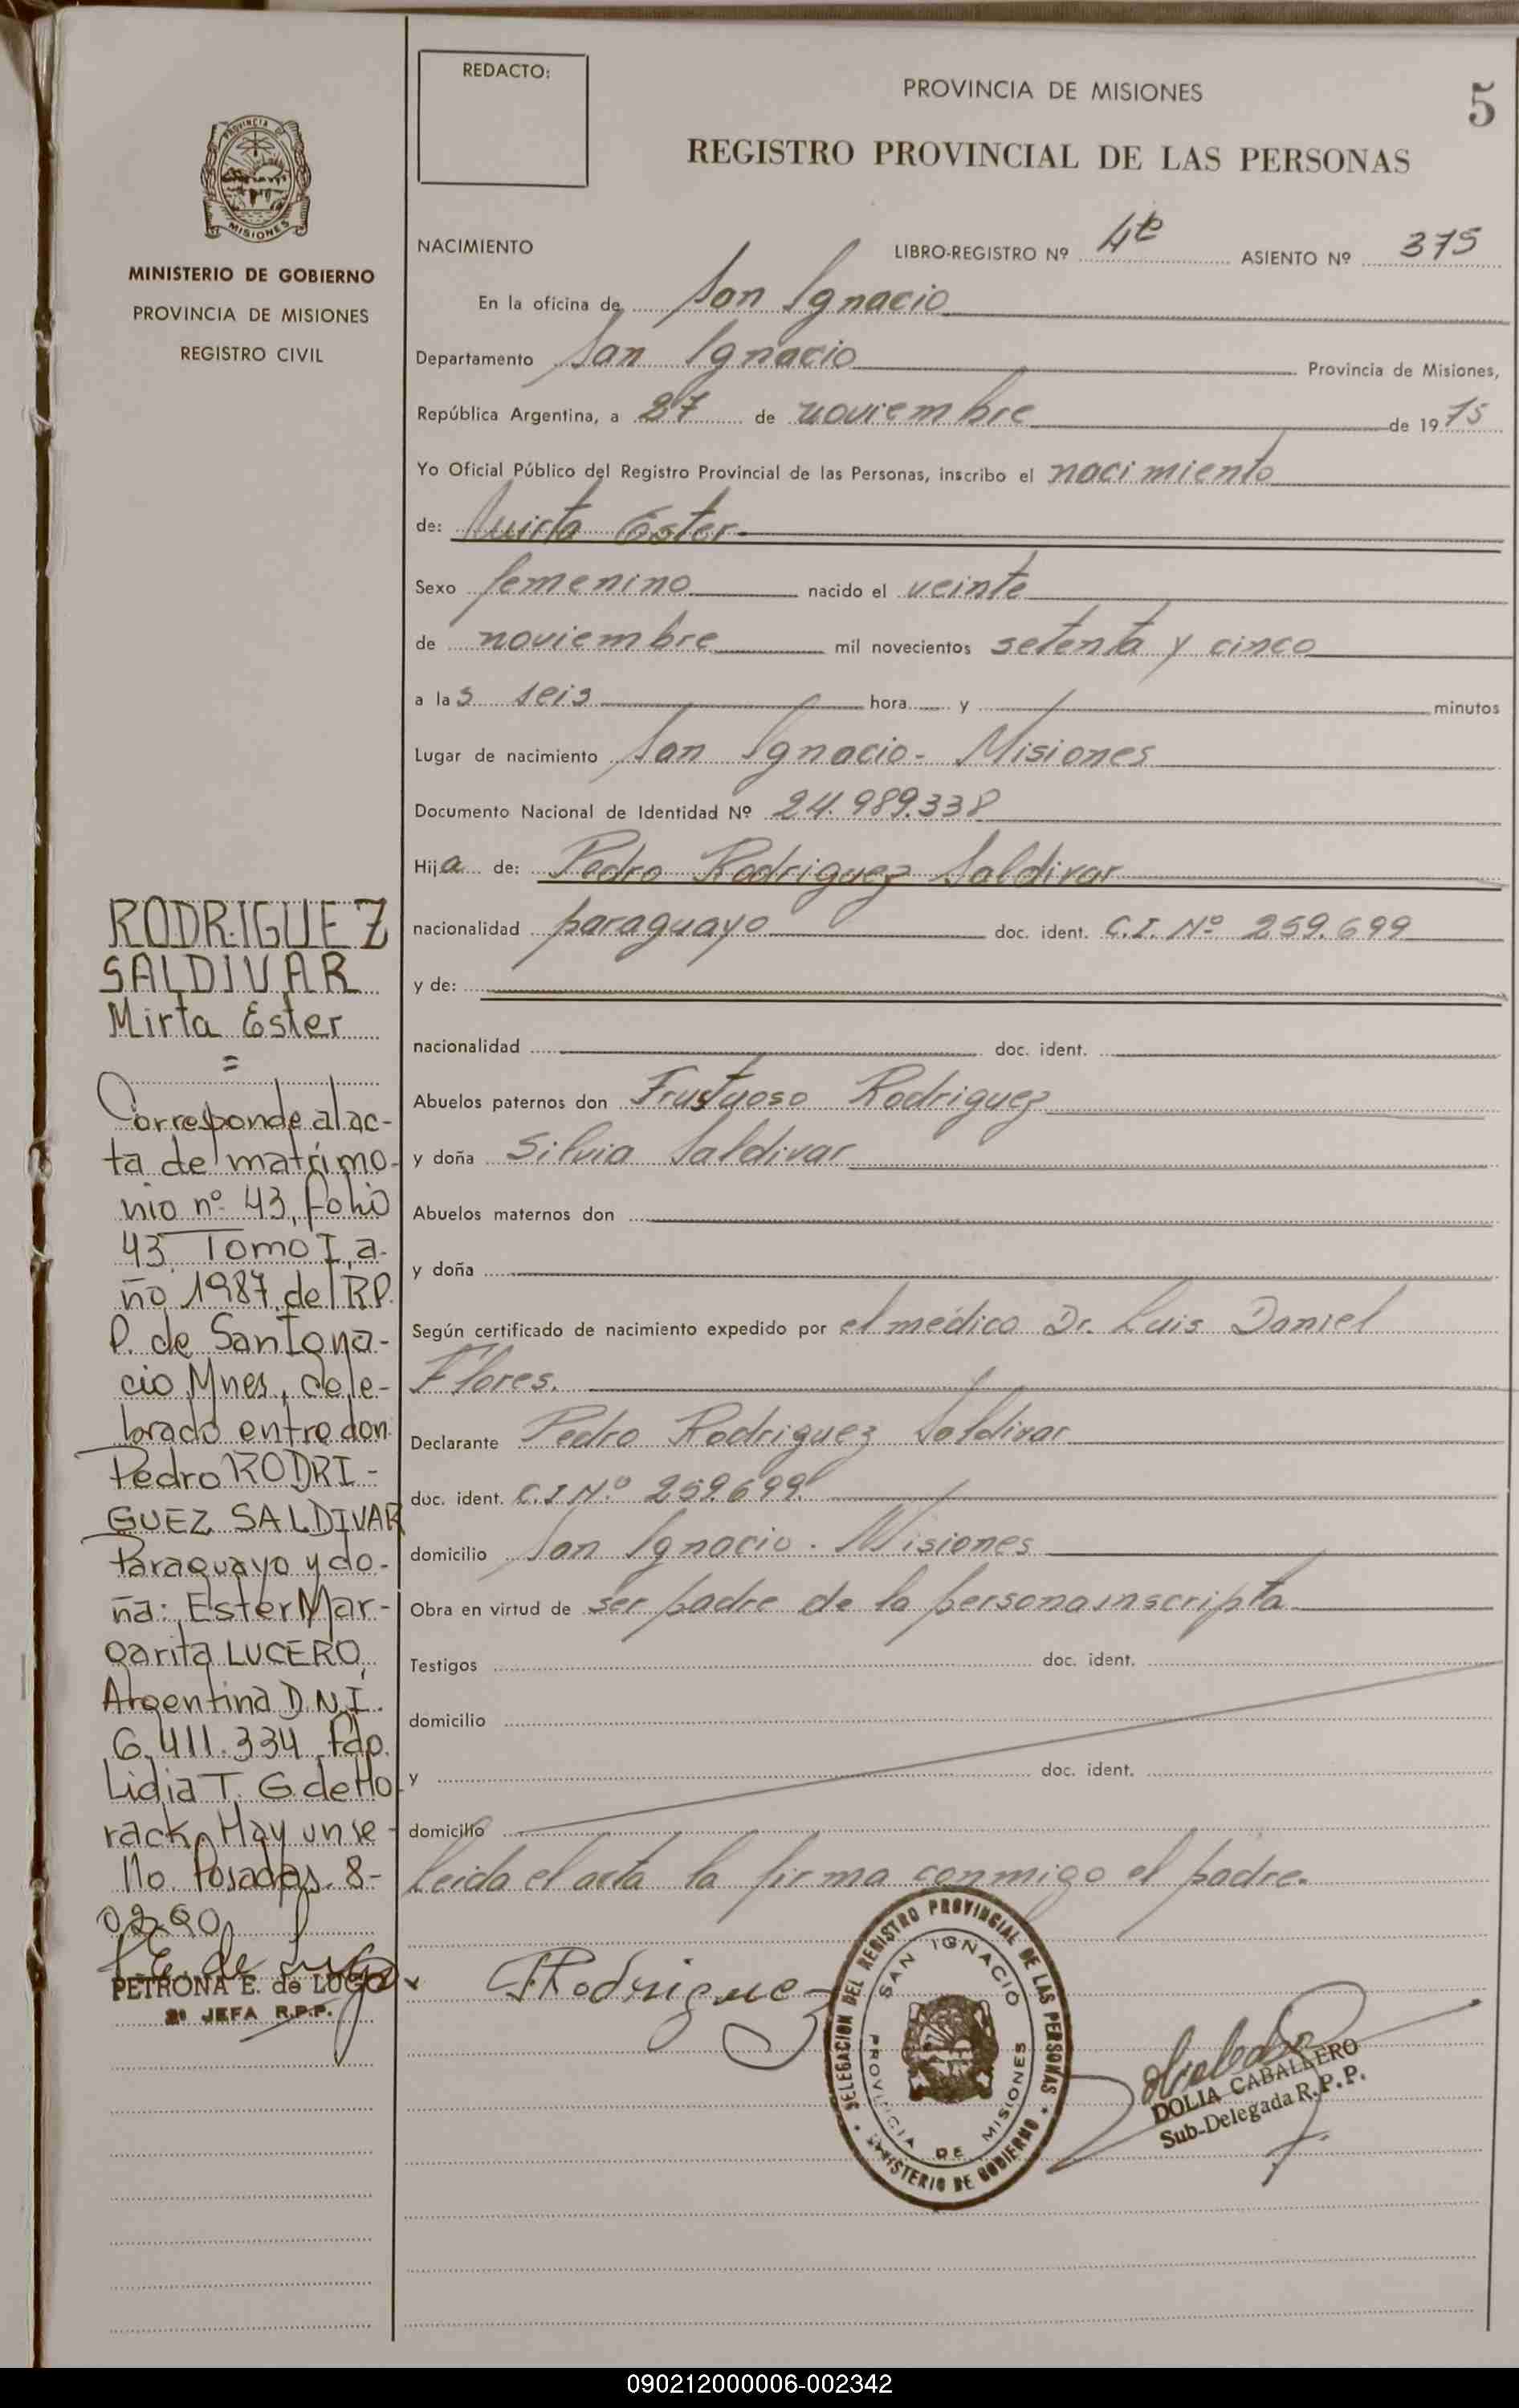 REDACTO:
PROVINCIA DE MISIONES
5
REGISTRO PROVINCIAL DE LAS PERSONAS
PROVINCIA DE
MISIONES
MINISTERIO DE GOBIERNO
PROVINCIA DE MISIONES
REGISTRO CIVIL
NACIMIENTO LIBRO-REGISTRO Nº 4to ASIENTO Nº 375
En la oficina de San Ignacio
Departamento San Ignacio Provincia de Misiones,
República Argentina, a 27 de noviembre de 1975
Yo Oficial Público del Registro Provincial de las Personas, inscribo el nacimiento
de: Mirta Ester
Sexo femenino nacido el veinte
de noviembre mil novecientos setenta y cinco
a las seis hora y minutos
Lugar de nacimiento San Ignacio - Misiones
Documento Nacional de Identidad Nº 24.989.338
Hija de: Pedro Rodriguez Saldivar
nacionalidad paraguayo doc. ident. C.I. Nº 259.699
y de:
nacionalidad doc. ident.
Abuelos paternos don Frustuoso Rodriguez
y doña Silvia Saldivar
Abuelos maternos don
y doña
Según certificado de nacimiento expedido por el médico Dr. Luis Daniel
Flores.
Declarante Pedro Rodriguez Saldivar
doc. ident. C.I Nº 259.699.
domicilio San Ignacio. Misiones
Obra en virtud de ser padre de la persona inscripta
Testigos doc. ident.
domicilio
y doc. ident.
domicilio
Leida el acta la firma conmigo el padre.
RODRIGUEZ
SALDIVAR
Mirta Ester
=
Corresponde al ac-
ta de matrimo-
nio nº 43, folio
43 Tomo I, a-
ño 1987 del R.P.
P. de San Igna-
cio Mnes, cele-
brado entre don
Pedro RODRI-
GUEZ SALDIVAR
Paraguayo y do-
ña: Ester Mar-
garita LUCERO,
Argentina D.N.I.
6.411.334 Fdo.
Lidia T. G. de Ho-
rack. Hay un se-
llo. Posadas. 8-
02-90
PETRONA E. de LUGO
2ª JEFA R.P.P.
Rodriguez
DELEGACION DEL REGISTRO PROVINCIAL DE LAS PERSONAS
SAN IGNACIO
PROVINCIA DE MISIONES
MINISTERIO DE GOBIERNO
DOLIA CABALLERO
Sub-Delegada R.P.P.
090212000006-002342